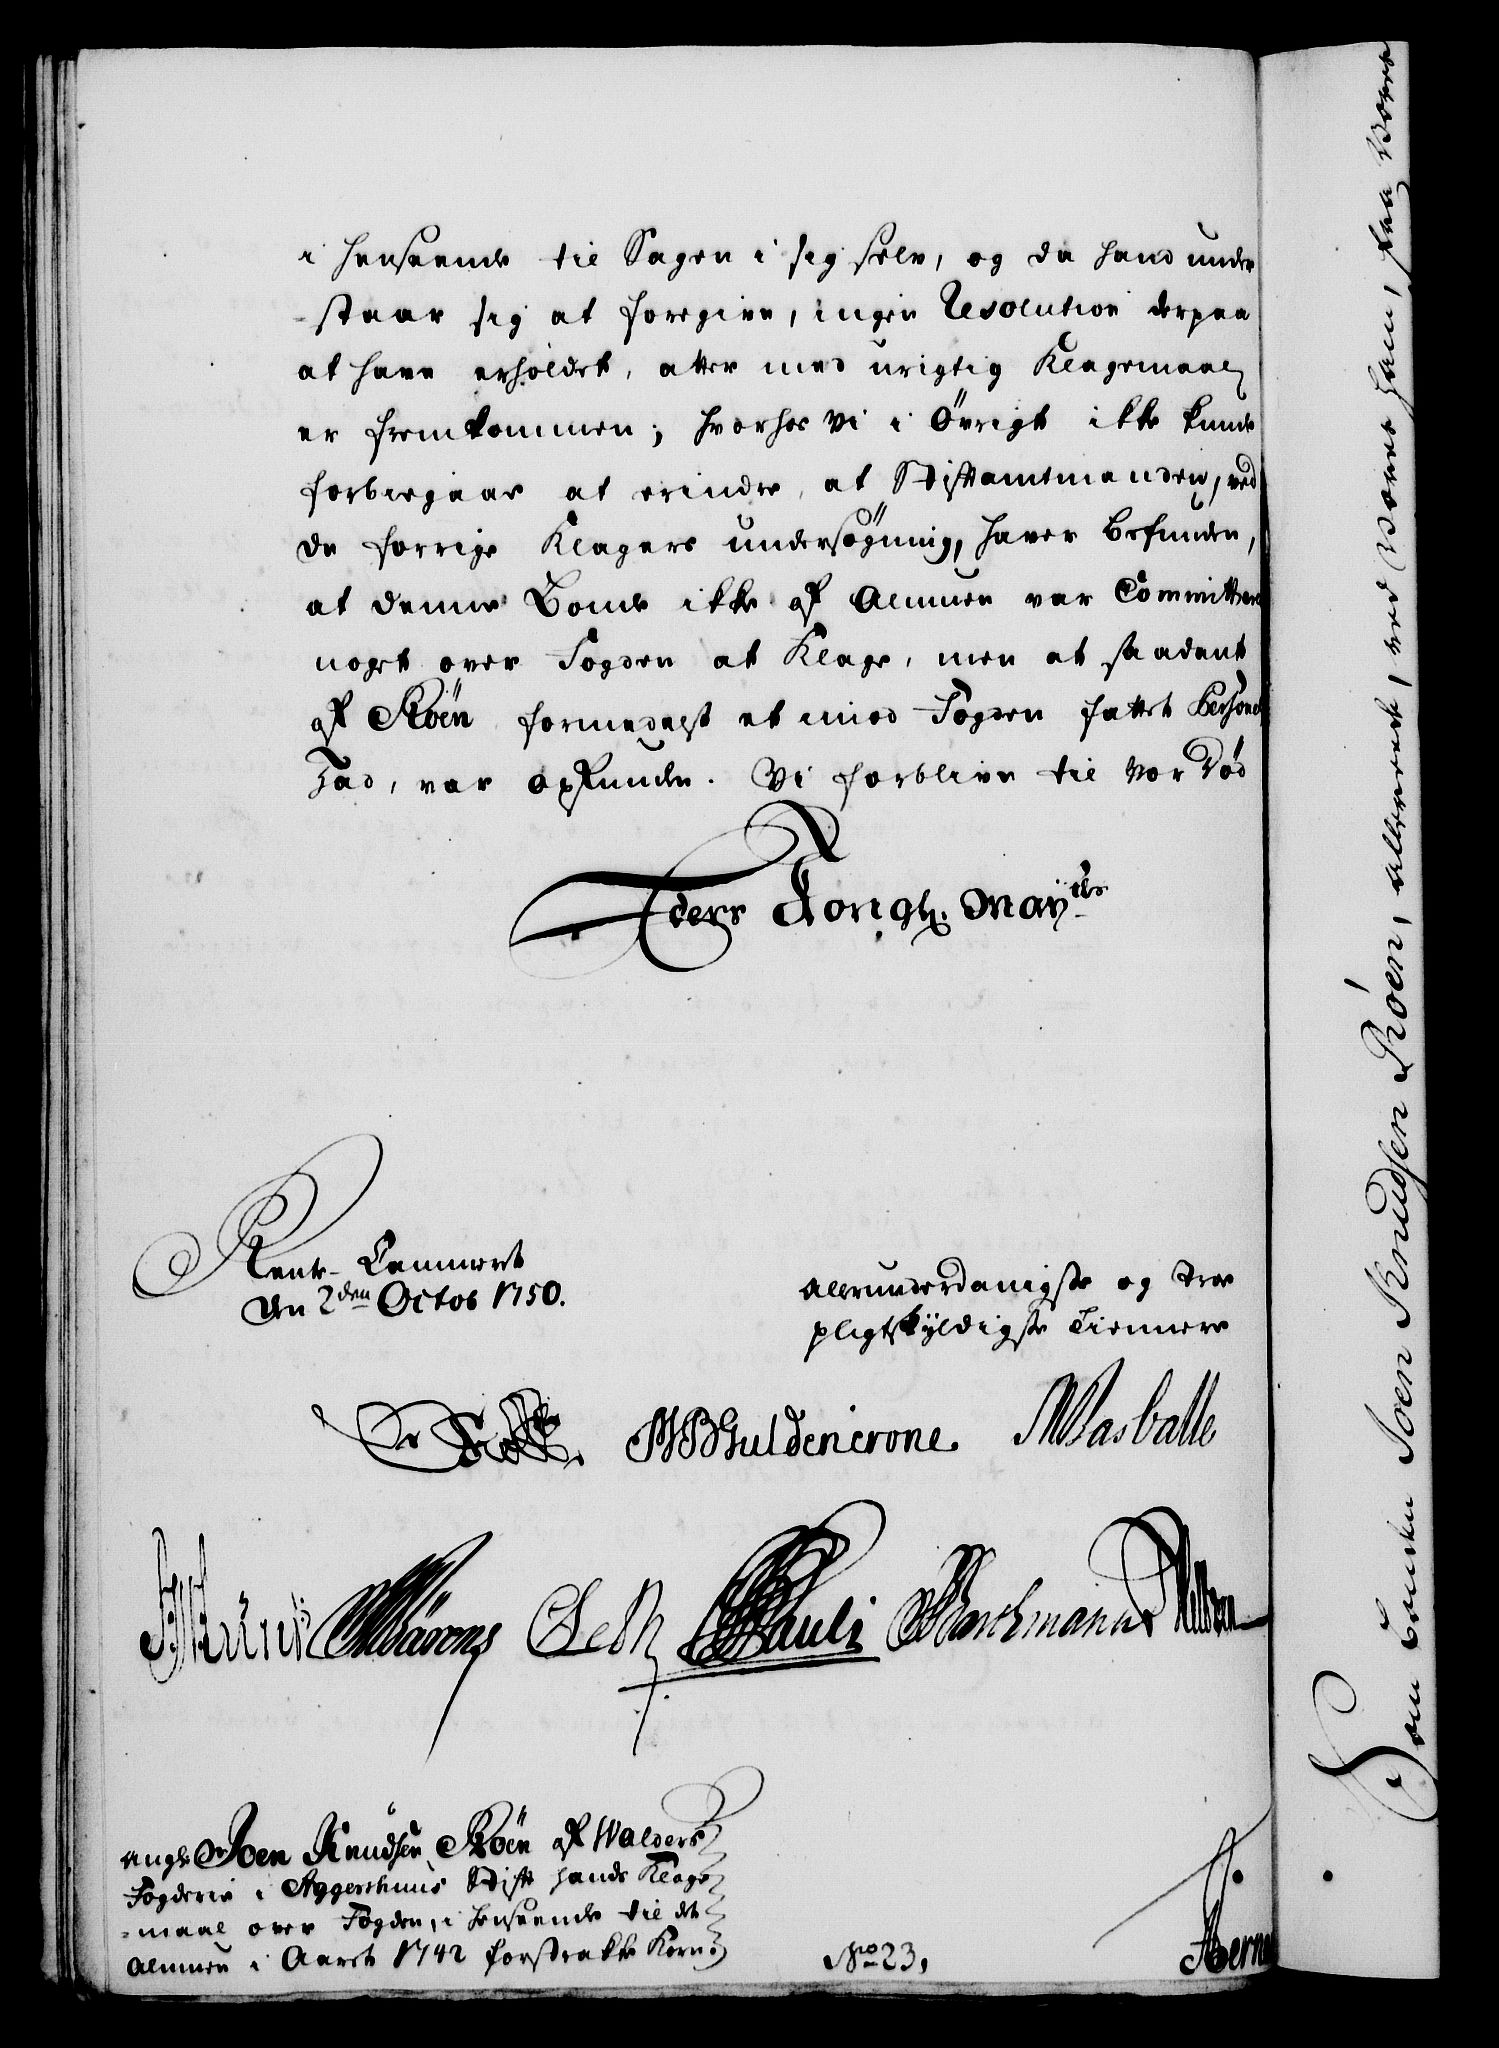 i henseende til Sagen i sig selv, og da hand under
-staar sig at foregive, ingen Resolution derpaa
at have erholdet, atter med urigtig Klagemaal
er fremkommen; hvorhos Vi i Øvrigt ikke kunde
forbiegaae at erindre, at Stiftamtmanden, ved
de forrige Klagers undersøgning, haver befunden,
at denne Bonde ikke af Almuen var Committeret
noget over Fogden at Klage, men at saadant
af Röen formedelst et imod Fogden fattet Personel
Had, var opfunden. Vi forblive til Vor Død
Eders Kongl. May:ts
Rente-Cammeret
den 2den Octob 1750.
allerunderdanigste og Troe
pligtskyldigste Tiennere
MBGuldencrone. Rasballe
Pauli
angl: Joen Knudsen Röen af Walders
Fogderie i Aggershuus Stift hands Klage
-maal over Fogden, i henseende til det
Almuen i Aaret 1742 forstrakte Korn.
No 23,
Som bonden Joen Knudsen Röen, allereede, ved Vores Ham, paa Vores